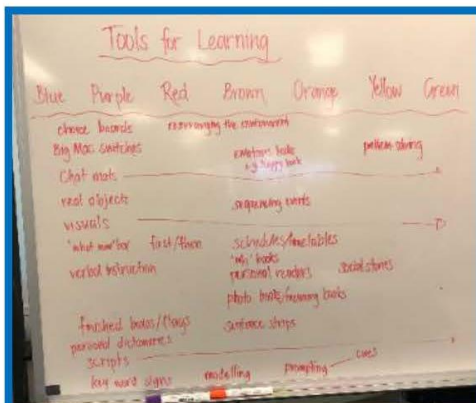 Tools for Learning
Blue Purple Red Brown Orange Yellow Green
choice boards rearranging the environment
Big Mac switches emotions books problem-solving
e.g. happy book
Chat mats
real objects sequencing events
visuals
"what now" box first/then schedules/timetables
"my" books
verbal instruction personal readers social stories
photo books/memory books
finished boxes/trays sentence strips
personal dictionaries
scripts
key word signs modelling prompting cues